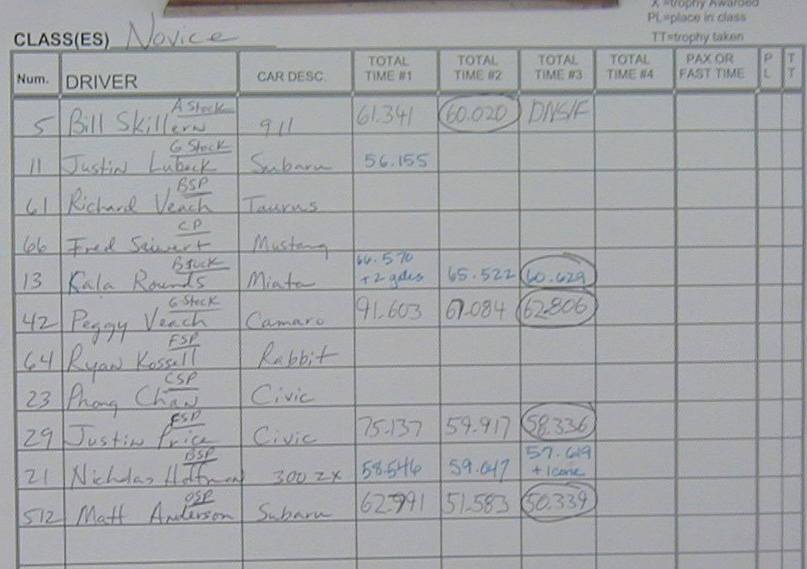 X =trophy Awarded
PL=place in class
TT=trophy taken
CLASS(ES) Novice
Num. DRIVER CAR DESC. TOTAL TIME #1 TOTAL TIME #2 TOTAL TIME #3 TOTAL TIME #4 PAX OR FAST TIME P L T T
A Stock
5 Bill Skillern 911 61.341 60.020 DNS/F
G Stock
11 Justin Lubeck Subaru 56.155
BSP
61 Richard Veach Taurus
CP
66 Fred Seiwert Mustang
B Stock 66.570
13 Kala Rounds Miata +2 gates 65.522 60.629
G Stock
42 Peggy Veach Camaro 91.603 67.084 62.806
FSP
64 Ryan Kossell Rabbit
CSP
23 Phong Chan Civic
FSP
29 Justin Price Civic 75.137 59.917 58.336
BSP 57.619
21 Nicholas Hoffman 300 ZX 58.546 59.047 + 1 cone
OSP
512 Matt Anderson Subaru 62.991 51.583 50.339